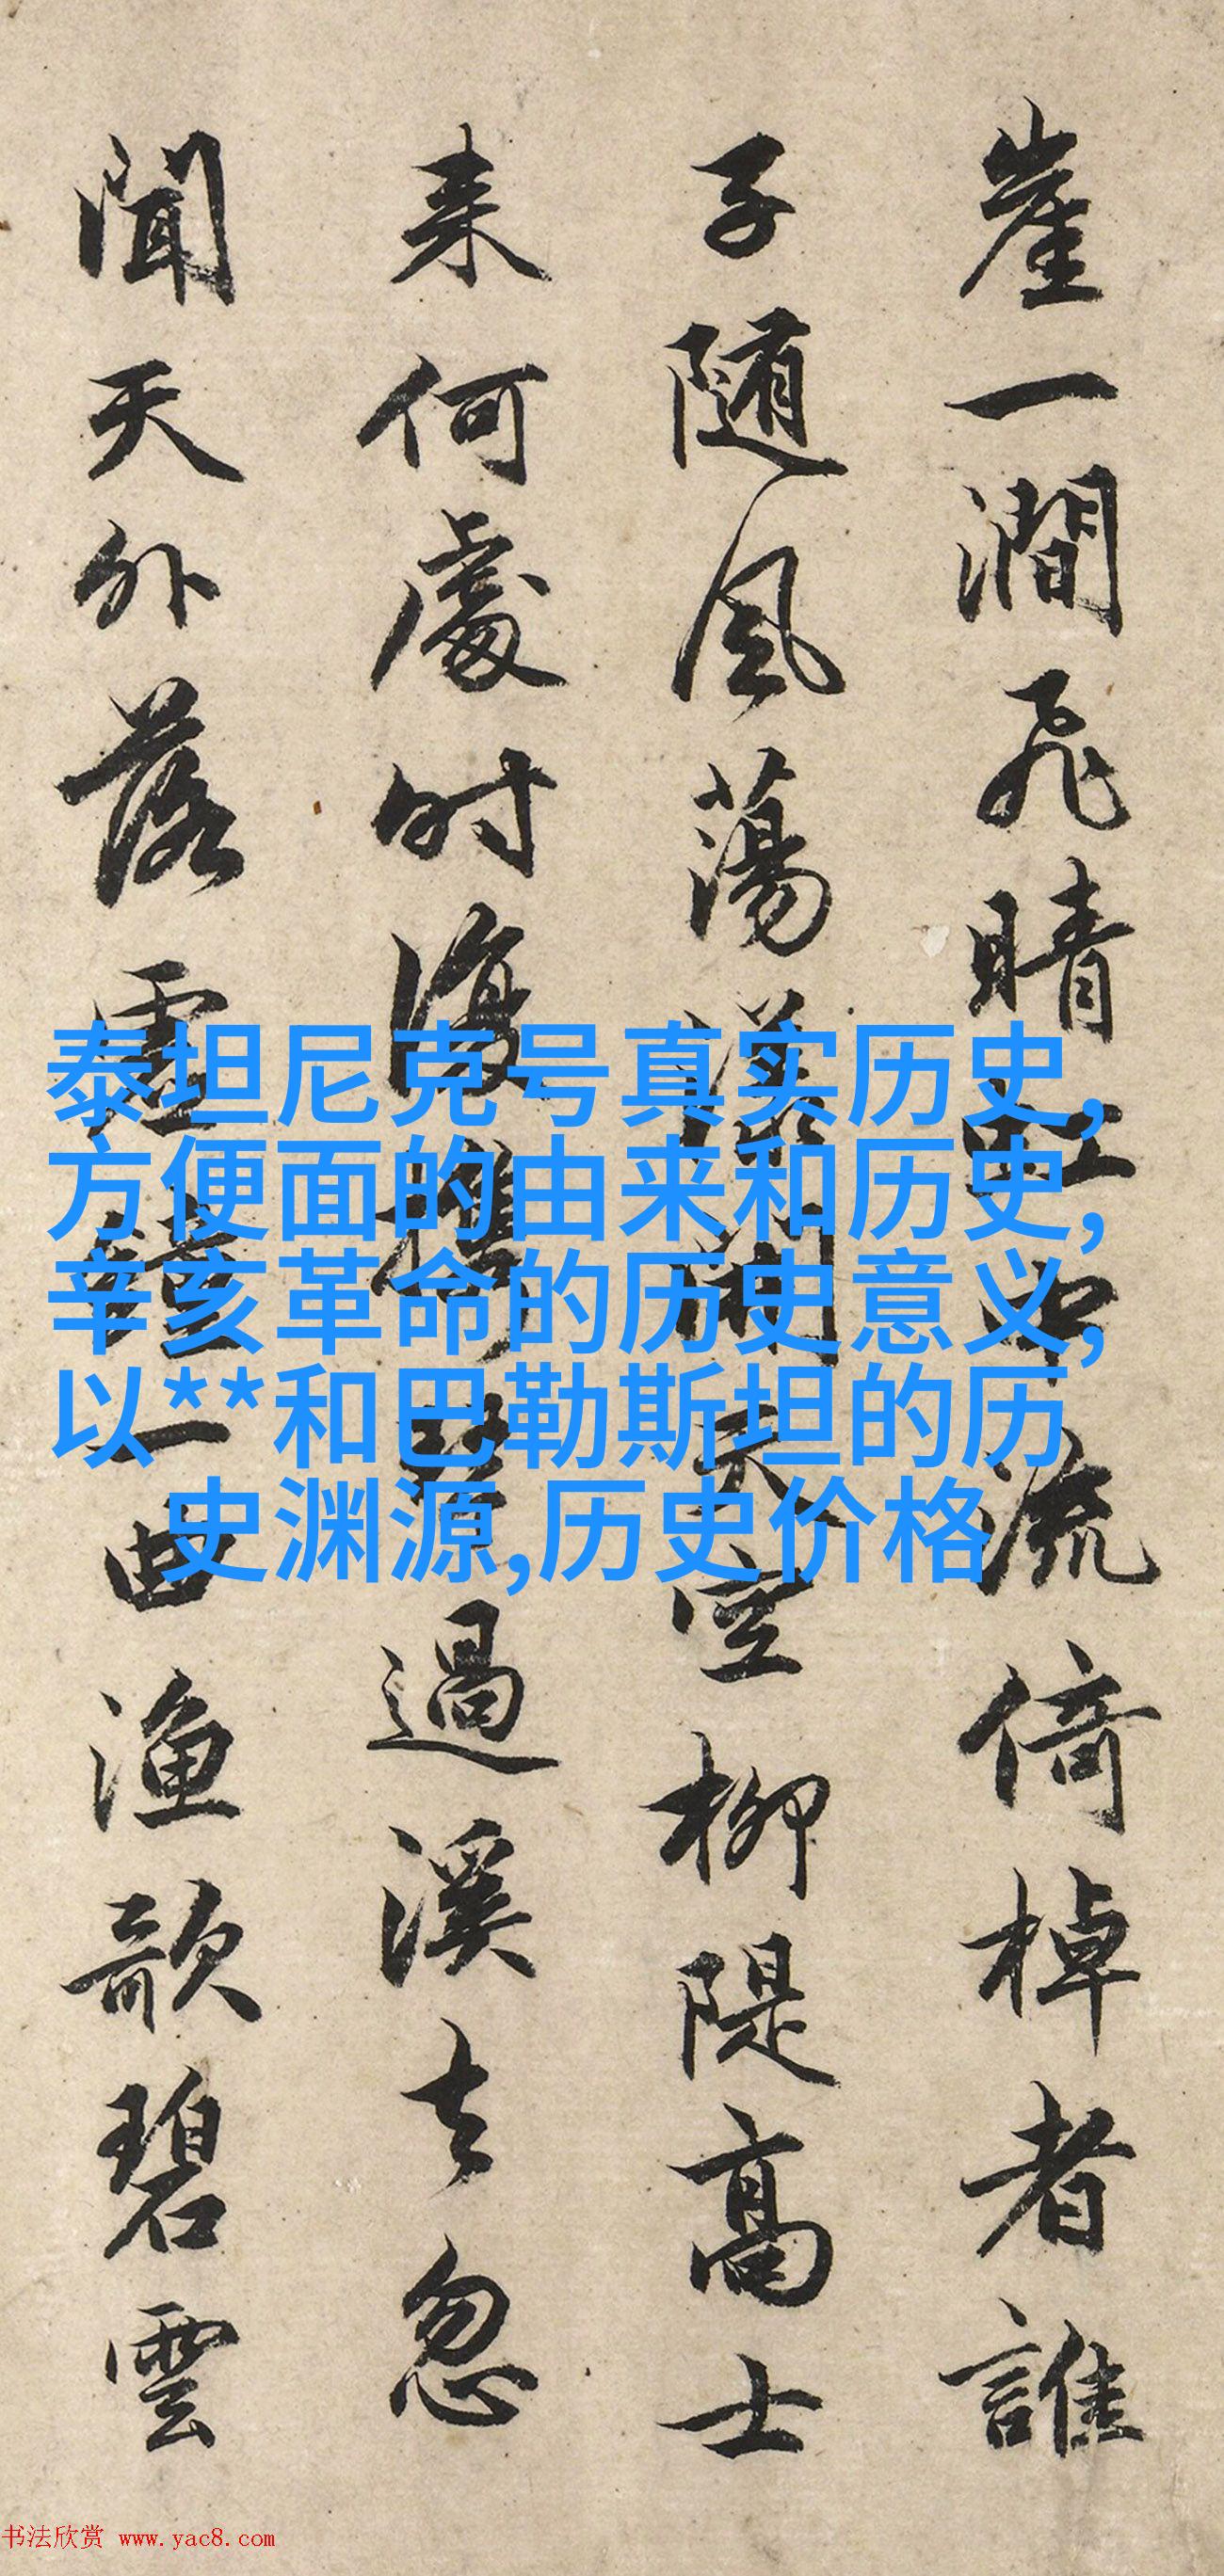 崖一澗飛晴虹中流倚棹者誰
子随風蕩漾天空柳隄高士
来何處时復攜琴過溪去忽
聞天外落靈一曲漁歌碧雲
泰坦尼克号真实历史,
方便面的由来和历史,
辛亥革命的历史意义,
以**和巴勒斯坦的历
史渊源,历史价格
书法欣赏 www.yac8.com